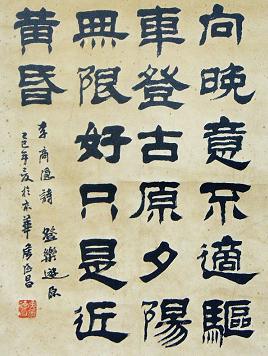 向晚意不適驅
車登古原夕陽
無限好只是近
黄昏
李商隱詩 登樂遊原
己巳年 於京華 昌